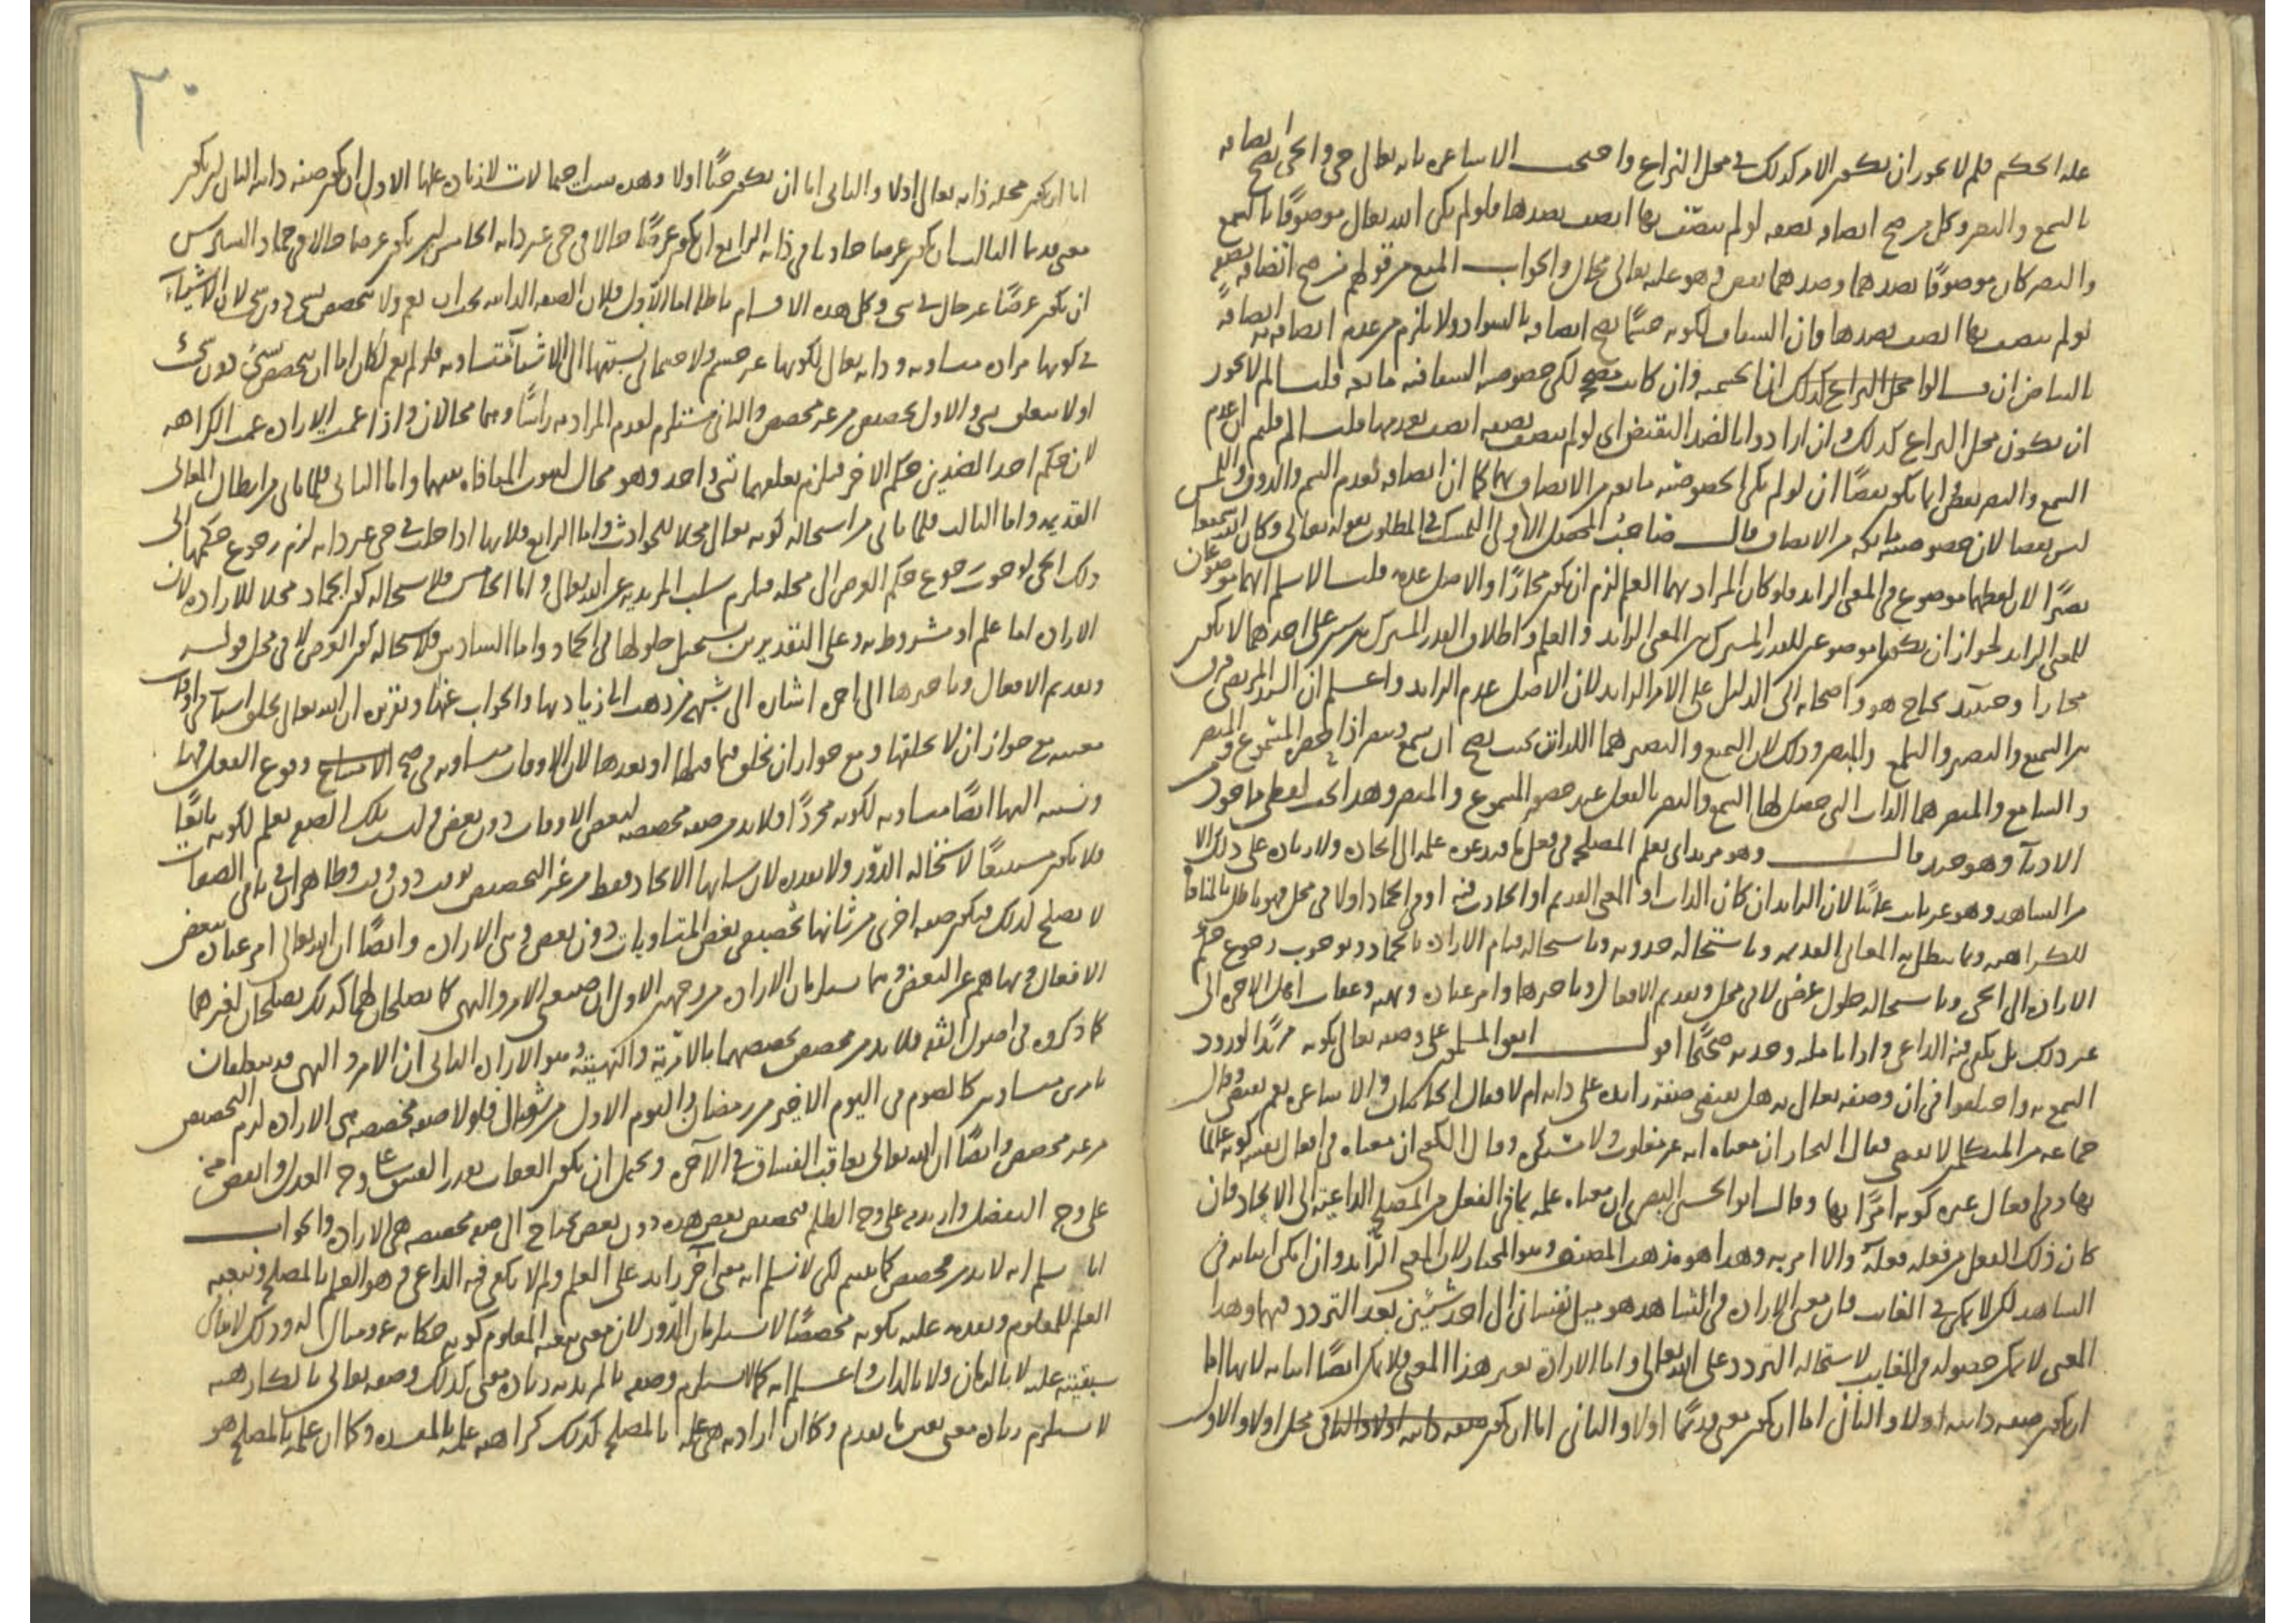 علة الحكم فلم لا يجوز ان يكون الامر كذلك في محل النزاع واحتجت الاشاعرة بانه تعالى حي والحي يصح اتصافه
بالسمع والبصر وكل من صح اتصافه بصفة لو لم يتصف بها اتصف بضدها فلو لم يكن الله تعالى موصوفا بالسمع
والبصر كان موصوفا بضدهما وضدهما نقص وهو عليه تعالى محال والجواب المنع من قولهم من صح اتصافه بصفة
لو لم يتصف بها اتصف بضدها فان الشفاف لكونه جسما يصح اتصافه بالسواد ولا يلزم من عدم اتصافه به اتصافه
بالبياض فان قالوا انا الجسمية وان كانت مصححة لكن خصوصية الشفافية مانعة قلنا لم لا يجوز
ان يكون محل النزاع كذلك وان ارادوا بالضد النقيض اي لو لم يتصف بصفة اتصف بعدمها قلنا لم قلتم ان عدم
السمع والبصر نقص انما يكون نقصا ان لو لم يكن لخصوصيته ما يمنع من الاتصاف بهما كما ان اتصافه بعدم الشم والذوق واللمس
ليس نقصا لان خصوصيته مانعة من الاتصاف قال صاحب المحصل الاولى التمسك في المطلوب بقوله تعالى وكان الله سميعا
بصيرا لان لفظهما موضوع في المعنى الزائد فلو كان المراد بهما العلم لزم ان يكون مجازا والاصل عدمه قلنا لا نسلم انهما موضوعان
للمعنى الزائد لجواز ان يكونا موضوعين للقدر المشترك بين المعنى الزائد والعلم واطلاق القدر المشترك بين شيئين على احدهما لا يكون
مجازا وحينئذ يحتاج هو واصحابه الى الدليل على الامر الزائد لان الاصل عدم الزائد واعلم ان السيد المرتضى فرق
بين السميع والبصير والسامع والمبصر وذلك لان السميع والبصير هما اللذان بحيث يصح ان يسمع ويبصر اذا حضر المسموع والمبصر
والسامع والمبصر هما الذات التي حصل لها السمع والبصر بالفعل عند حضور المسموع والمبصر وهذا بحث لفظي ماخوذ من
الادباء وهو جيد قال وهو مريد اي يعلم المصلحة في فعل ما فيدعوه علمه الى ايجاده ولا زيادة على ذلك الا
من الشاهد وهو غير ثابت غائبا لان الزائد ان كان الذات او المعنى القديم او الحادث فيه او في الجماد او لا في محل فهو باطل بالمنافاة
للكراهية وبما يبطل به المعاني القديمة وباستحالة حدوثه وباستحالة قيام الارادة بالجماد وبوجوب رجوع حكم
الارادة الى الحي وباستحالة حلول عرض لا في محل وتقديم الافعال وتاخيرها وامر عباده ونهيه وعقاب اهل الاخرة الى
غير ذلك بل يكفي فيه الداعي واذا تاملته وجدته صحيحا اقول اتفق المسلمون على وصفه تعالى بكونه مريدا لورود
السمع به واختلفوا في ان وصفه تعالى به هل يقتضي صفة زائدة على ذاته ام لا فقال الجبائيان والاشاعرة نعم يقتضي وقال
جماعة من المتكلمين لا يقتضي فقال النجار ان معناه انه غير مغلوب ولا مستكره وقال الكعبي ان معناه في افعال نفسه كونه عالما
بها وفي افعال غيره كونه امرا بها وقال ابو الحسين البصري ان معناه علمه بما في الفعل من المصلحة الداعية الى الايجاد فان
كان ذلك الفعل من فعله فعله والا امر به وهذا هو مذهب المصنف وهو المختار لان المعنى الزائد وان امكن اثباته في
الشاهد لكن لا يمكن في الغائب فان معنى الارادة في الشاهد هو ميل نفساني الى احد شيئين بعد التردد فيهما وهذا
المعنى لا يمكن حصوله في الغايب لاستحالة التردد على الله تعالى واما الارادة بغير هذا المعنى فلا يمكن ايضا اثباته لانها اما
ان يكون صفة ذاتية اولا والثاني اما ان يكون معنى قديما اولا والثاني اما ان يكون في محل اولا والاول
اما ان يكون محله ذاته تعالى اولا والثاني اما ان يكون حيا اولا وهذه ست احتمالات لا زيادة عليها الاول ان يكون صفة ذاتية الثاني ان يكون
معنى قديما الثالث ان يكون عرضا حادثا في ذاته الرابع ان يكون عرضا حالا في حي غير ذاته الخامس ان يكون عرضا حالا في جماد السادس
ان يكون عرضا غير حال في شي وكل هذه الاقسام باطلة اما الاول فلان الصفة الذاتية يجب ان تعم ولا تختص بشي دون شي لان الاشياء
في كونها مرادة متساوية وذاته تعالى لكونها غير جسم ولا جسماني نسبتها الى الاشياء متساوية فلو لم تعم لكان اما ان يتخصص بشيء دون شيء
اولا يتعلق بشي والاول تخصيص من غير مخصص والثاني مستلزم لعدم المرادية راسا وهما محالان واذا عمت الارادة عمت الكراهة
لان حكم احد الضدين حكم الاخر فيلزم تعلقهما بشي واحد وهو محال لثبوت المنافاة بينهما واما الثاني فلما ياتي من ابطال المعاني
القديمة واما الثالث فلما ياتي من استحالة كونه تعالى محلا للحوادث واما الرابع فلانها اذا حلت في حي غير ذاته لزم رجوع حكمها الى
ذلك الحي لوجوب رجوع حكم العرض الى محله فيلزم سلب المريدية عن الله تعالى واما الخامس فلاستحالة كون الجماد محلا للارادة لان
الارادة اما علم او مشروطة به وعلى التقديرين يستحيل حلولها في الجماد واما السادس فلاستحالة كون العرض لا في محل قوله
وتقديم الافعال وتاخيرها الى اخره اشارة الى شبهة من ذهب الى زيادتها والجواب عنها وتقريره ان الله تعالى يخلق اشيا في اوقات
معينة مع جواز ان لا يخلقها ومع جواز ان يخلق فيما قبلها او بعدها لان الاوقات متساوية في صحة وقوع الفعل فيها
ونسبته اليها ايضا متساوية لكونه مجردا فلا بد من صفة مخصصة لبعض الاوقات دون بعض وليست تلك الصفة العلم لكونه تابعا
فلا يكون مستتبعا لاستحالة الدور ولا القدرة لان شانها الايجاد فقط من غير التخصيص بوقت دون وقت وظاهر ان باقي الصفات
لا يصلح لذلك فيكون صفة اخرى من شانها تخصيص بعض المتساويات دون بعض وهي الارادة وايضا ان الله تعالى امر عباده ببعض
الافعال ونهاهم عن البعض وهما يستلزمان الارادة من وجهين الاول ان صيغتي الامر والنهي كما يصلحان لهما كذلك يصلحان لغيرهما
كما ذكروه في اصول الفقه فلا بد من مخصص يخصصهما بالامرية والنهيية وهو الارادة الثاني ان الامر والنهي قد يتعلقان
بامرين متساويين كالصوم في اليوم الاخير من رمضان واليوم الاول من شوال فلولا صفة مخصصة هي الارادة لزم التخصيص
من غير مخصص وايضا ان الله تعالى يعاقب الفساق في الآخرة ويحتمل ان يكون العقاب بقدر الفسق على وجه العدل وانقص منه
على وجه التفضل وازيد منه على وجه الظلم فتخصيص بعض هذه دون بعض يحتاج الى صفة مخصصة هي الارادة والجواب
انا نسلم انه لا بد من مخصص كما بينتم لكن لا نسلم انه معنى آخر زايد على العلم ولم لا يكفي فيه الداعي وهو العلم بالمصلحة وتبعية
العلم للمعلوم وتقدمه عليه بكونه مخصصا لا يستلزمان الدور لان معنى تبعية المعلوم كونه حكاية عنه ومثالا له وذلك لا ينافي
سبقيته عليه لا بالزمان ولا بالذات واعلم انه كما لا يستلزم وصفه بالمريدية زيادة معنى كذلك وصفه تعالى بالكارهية
لا يستلزم زيادة معنى بعين ما تقدم وكما ان ارادته هي علمه بالمصلحة كذلك كراهته علمه بالمفسدة وكما ان علمه بالمصلحة هو